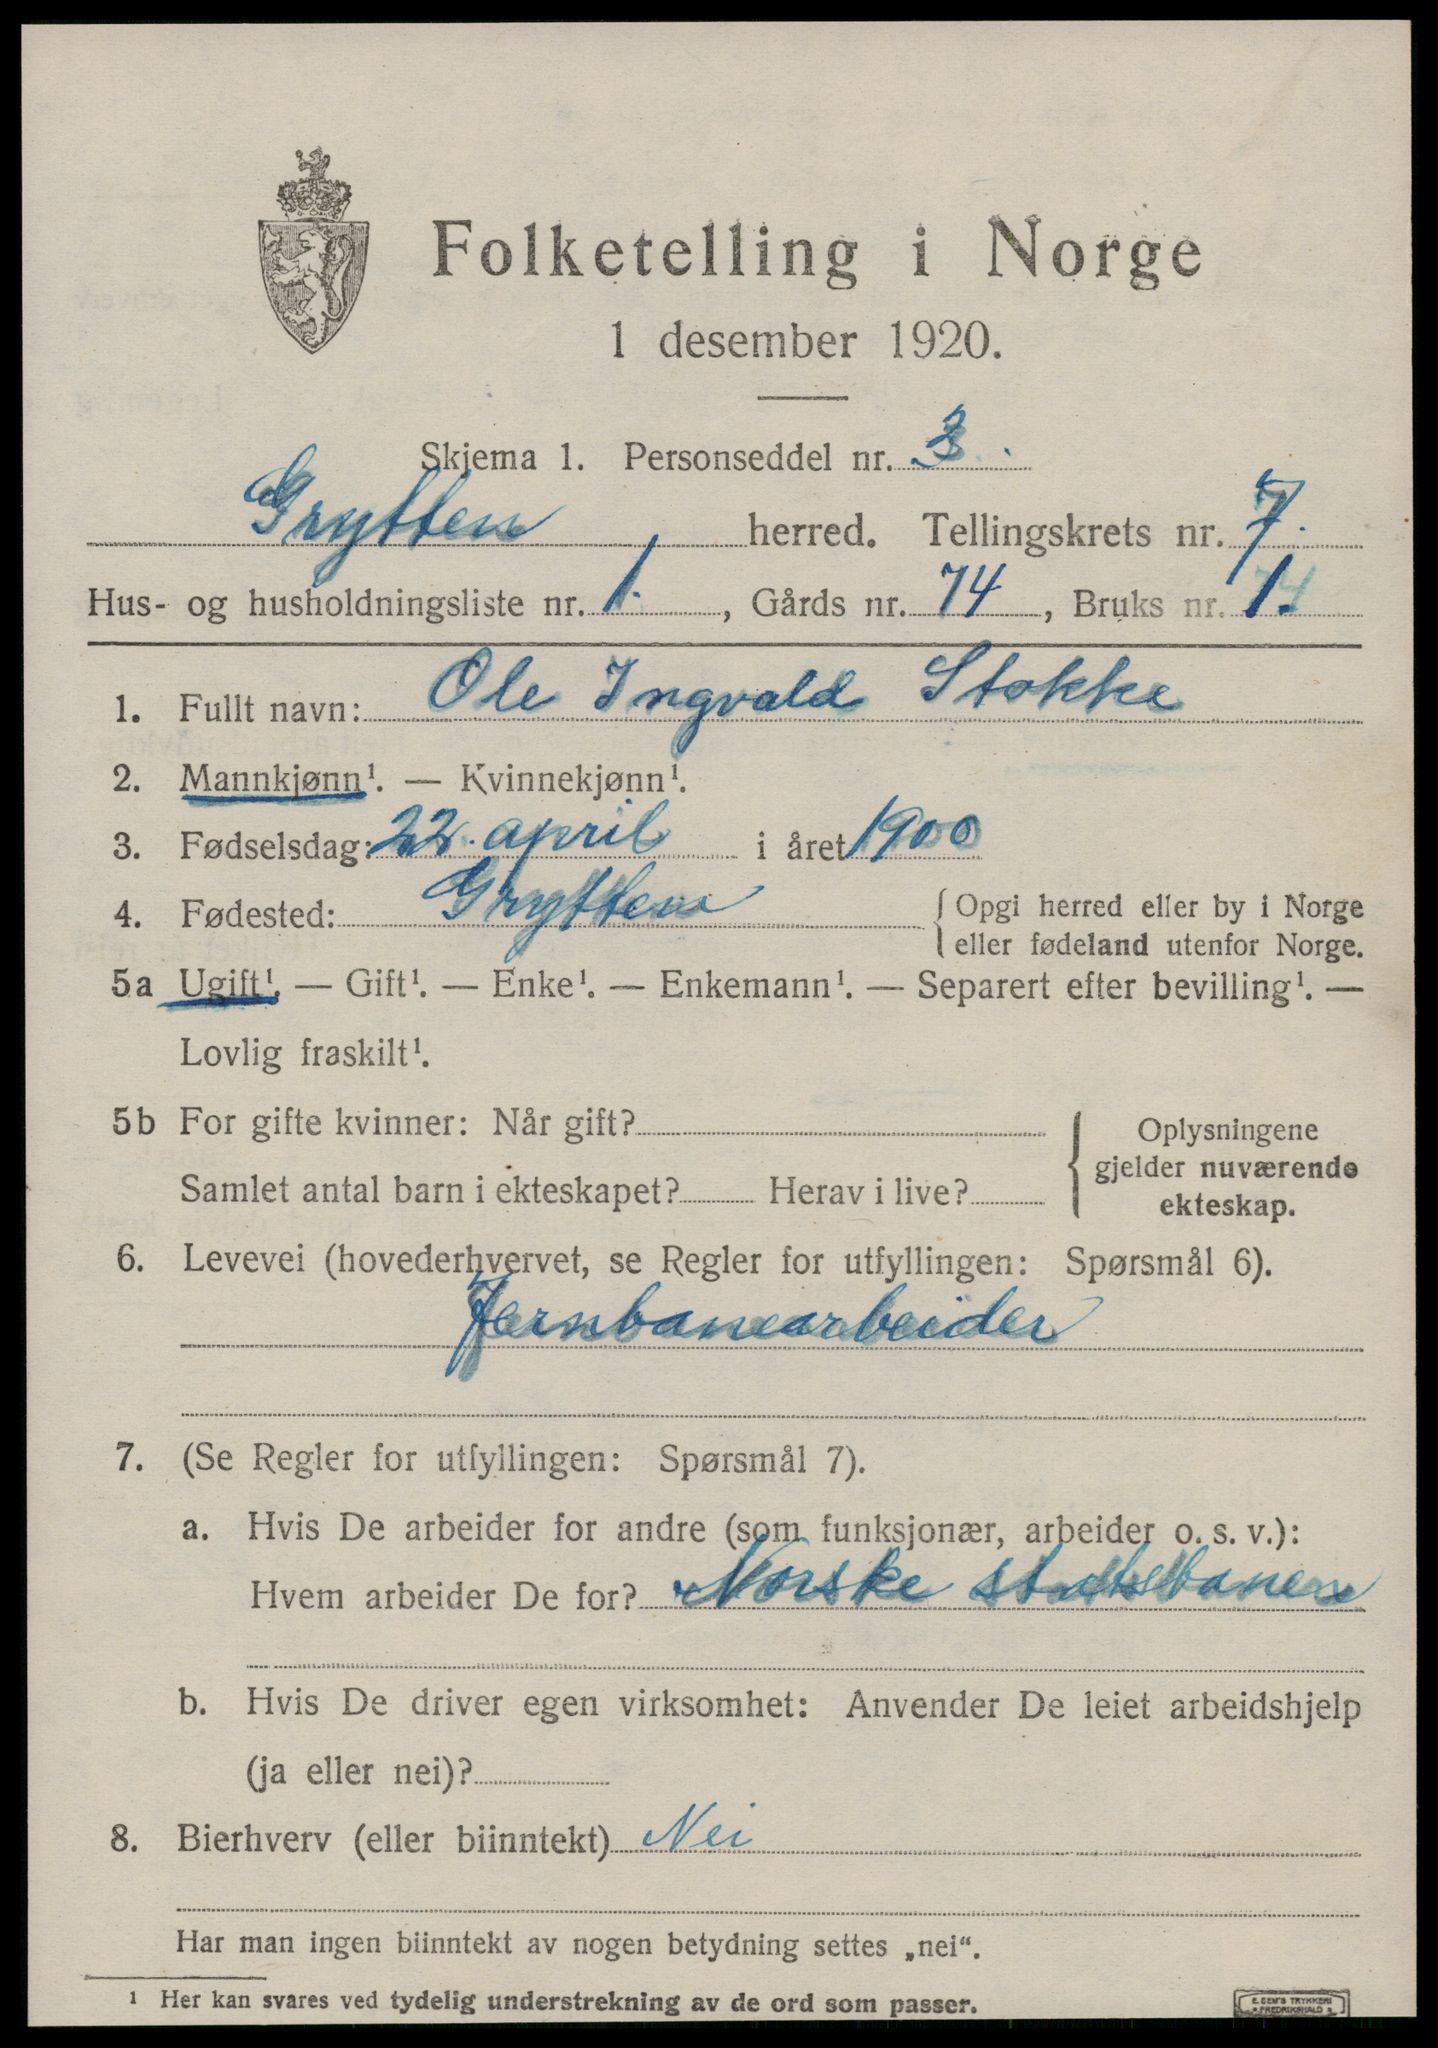 Folketelling i Norge
1 desember 1920.
Skjema 1. Personseddel nr. 3.
Grytten herred. Tellingskrets nr. 7.
Hus- og husholdningsliste nr. 1. , Gårds nr. 74 , Bruks nr. 1.
1. Fullt navn: Ole Ingvald Stokke
2. Mannkjønn¹. — Kvinnekjønn¹.
3. Fødselsdag: 22. april i året 1900
4. Fødested: Grytten { Opgi herred eller by i Norge
eller fødeland utenfor Norge.
5a Ugift¹. — Gift¹. — Enke¹. — Enkemann¹. — Separert efter bevilling¹. —
Lovlig fraskilt¹.
5b For gifte kvinner: Når gift?
Samlet antal barn i ekteskapet? Herav i live?
{ Oplysningene
gjelder nuværende
ekteskap.
6. Levevei (hovederhvervet, se Regler for utfyllingen: Spørsmål 6).
Jernbanearbeider
7. (Se Regler for utfyllingen: Spørsmål 7).
a. Hvis De arbeider for andre (som funksjonær, arbeider o. s. v.):
Hvem arbeider De for? Norske statsbaner
b. Hvis De driver egen virksomhet: Anvender De leiet arbeidshjelp
(ja eller nei)?
8. Bierhverv (eller biinntekt) Nei
Har man ingen biinntekt av nogen betydning settes „nei“.
¹ Her kan svares ved tydelig understrekning av de ord som passer.
E. SEM'S TRYKKERI
FREDRIKSHALD